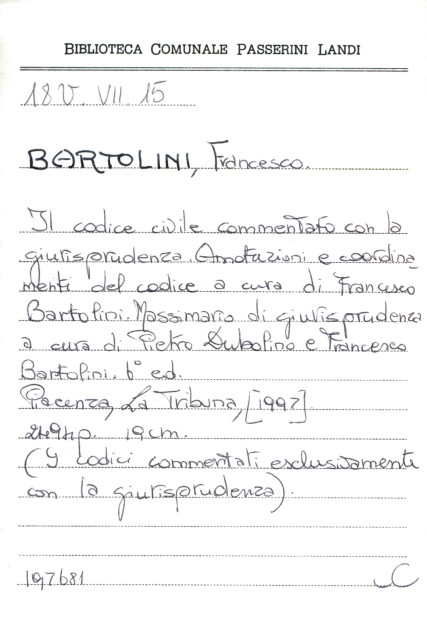 BIBLIOTECA COMUNALE PASSERINI LANDI
18.V. VII. 15
BARTOLINI, Francesco.
Il codice civile commentato con la
giurisprudenza. Annotazioni e coordina
menti del codice a cura di Francesco
Bartolini. Massimario di giurisprudenza
a cura di Pietro Dubolino e Francesco
Bartolini. 6° ed.
Piacenza, La Tribuna, [1992].
2494 p. 19 cm.
(I codici commentati esclusivamente
con la giurisprudenza).
197681